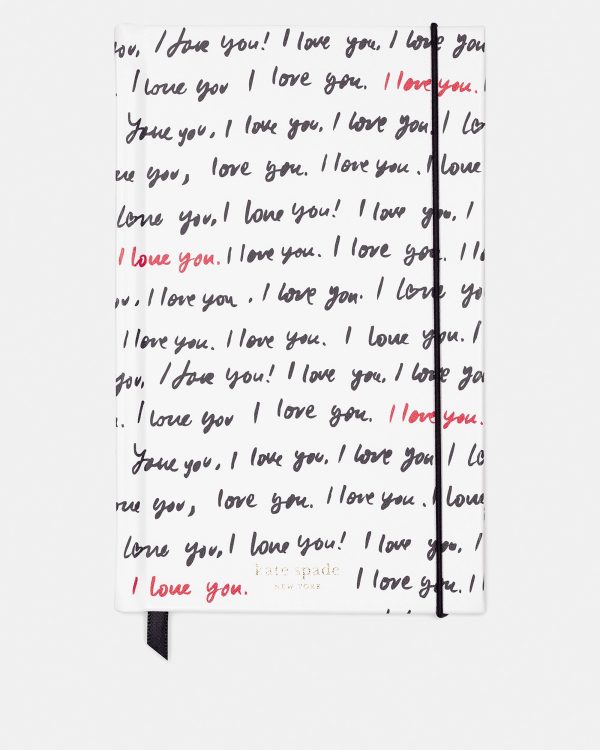 you, I love you! I love you, I love you
I love you I love you. I love you.
Love you, I love you, I love you, I lo
you, love you. I love you. I love
Love you, I love you! I love you, I
I love you. I love you. I love you. I lo
you, I love you, I love you. I love yo
I love you. I love you. I love you. I
you, I love you! I love you, I love you
I love you I love you. I love you.
Love you, I love you, I love you I lo
you, love you. I love you. I love
Love you, I love you! I love you, I
kate spade
NEW YORK
I love you. I love you. I